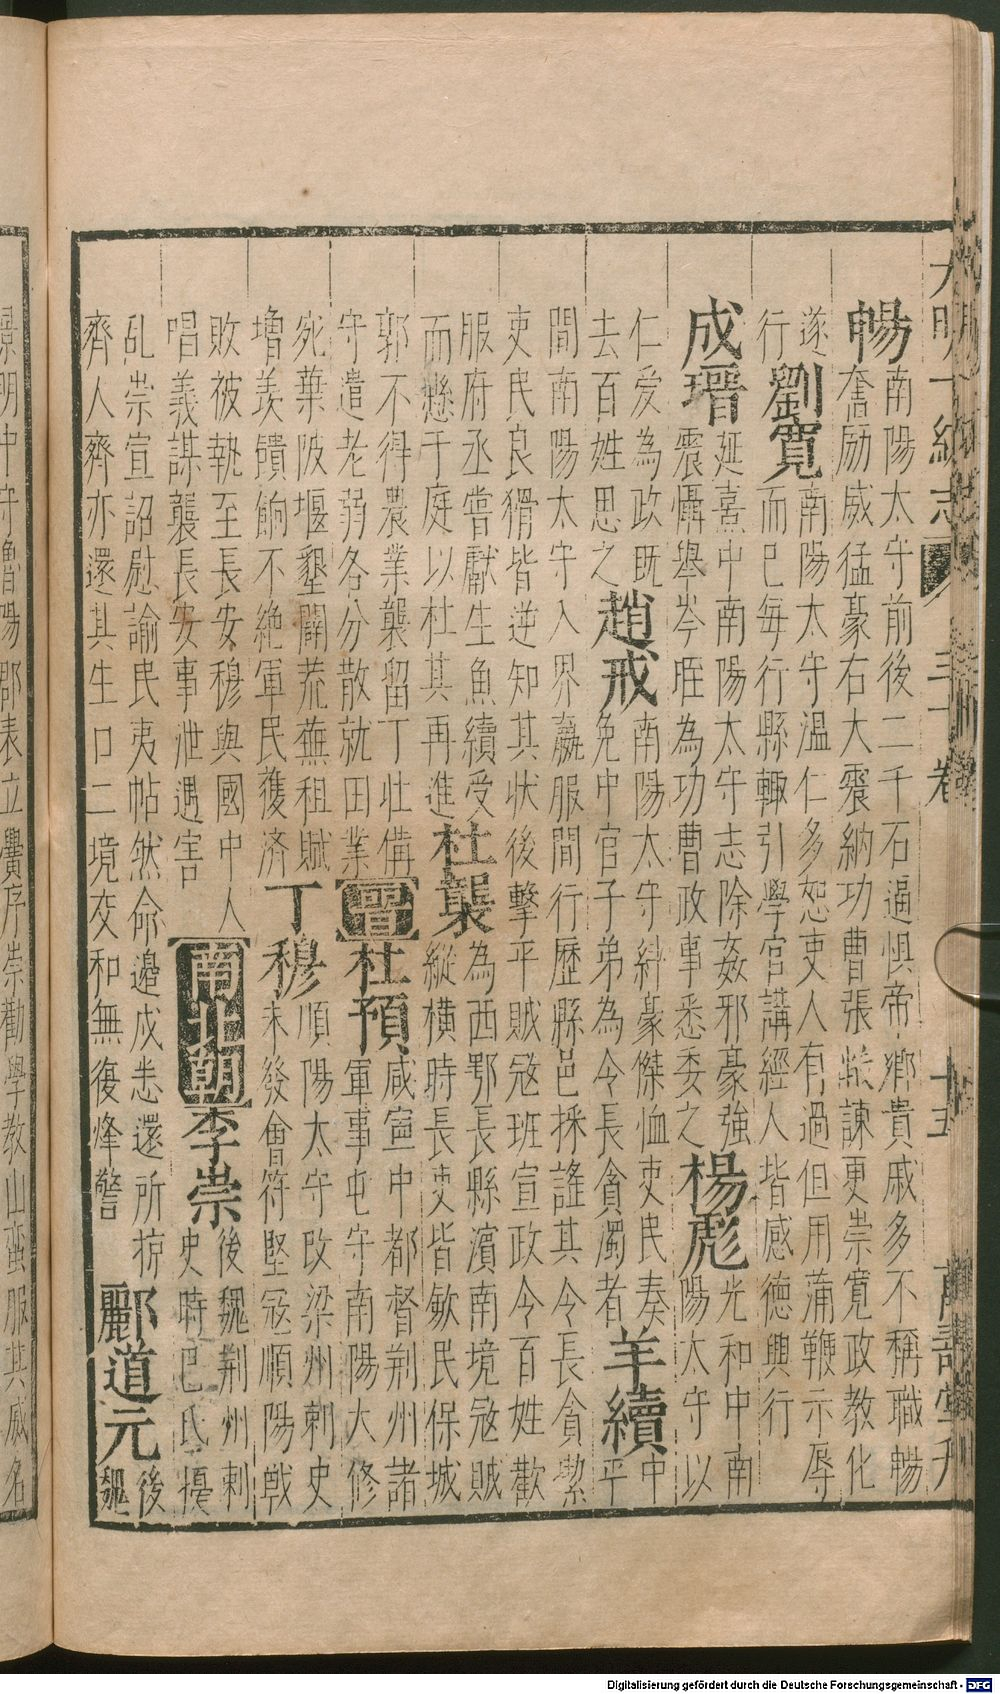 大明一統志 三十卷 十五 萬壽堂刊
暢
南陽太守前後二千石逼懼帝鄉貴戚多不稱職暢
奮勵威猛豪右大震納功曹張敞諫更崇寬政教化
遂
行
劉寬
南陽太守温仁多恕吏人有過但用蒲鞭示辱
而已每行縣輙引學官講經人皆感德興行
成瑨
延熹中南陽太守志除姦邪豪強
震懾舉岑晊為功曹政事悉委之
楊彪
光和中南
陽太守以
仁愛為政既
去百姓思之
趙戒
南陽太守紏豪傑恤吏民奏
免中官子弟為令長貪濁者
羊續
中
平
間南陽太守入界羸服間行歷縣邑採謡其令長貪㓗
吏民良猾皆逆知其狀後擊平賊冦班宣政令百姓歡
服府丞嘗獻生魚續受
而懸于庭以杜其再進
杜襲
為西鄂長縣濵南境冦賊
縱横時長吏皆歛民保城
郭不得農業襲留丁壯備
守遣老弱各分散就田業
晉
杜預
咸寧中都督荆州諸
軍事屯守南陽大修
宛葉陂堰墾闢荒蕪租賦
增羨饋餉不絶軍民獲濟
丁穆
順陽太守改梁州刺史
未發會符堅冦順陽戟
敗被執至長安穆與國中人
唱義謀襲長安事泄遇害
南北朝
李崇
後魏荆州刺
史時巴氐擾
乱崇宣詔慰諭民夷帖然命邊戍悉還所掠
齊人齊亦還其生口二境交和無復烽警
酈道元
後
魏
景明中守魯陽郡表立黌序崇勸學教山蠻服其威名
Digitalisierung gefördert durch die Deutsche Forschungsgemeinschaft - DFG